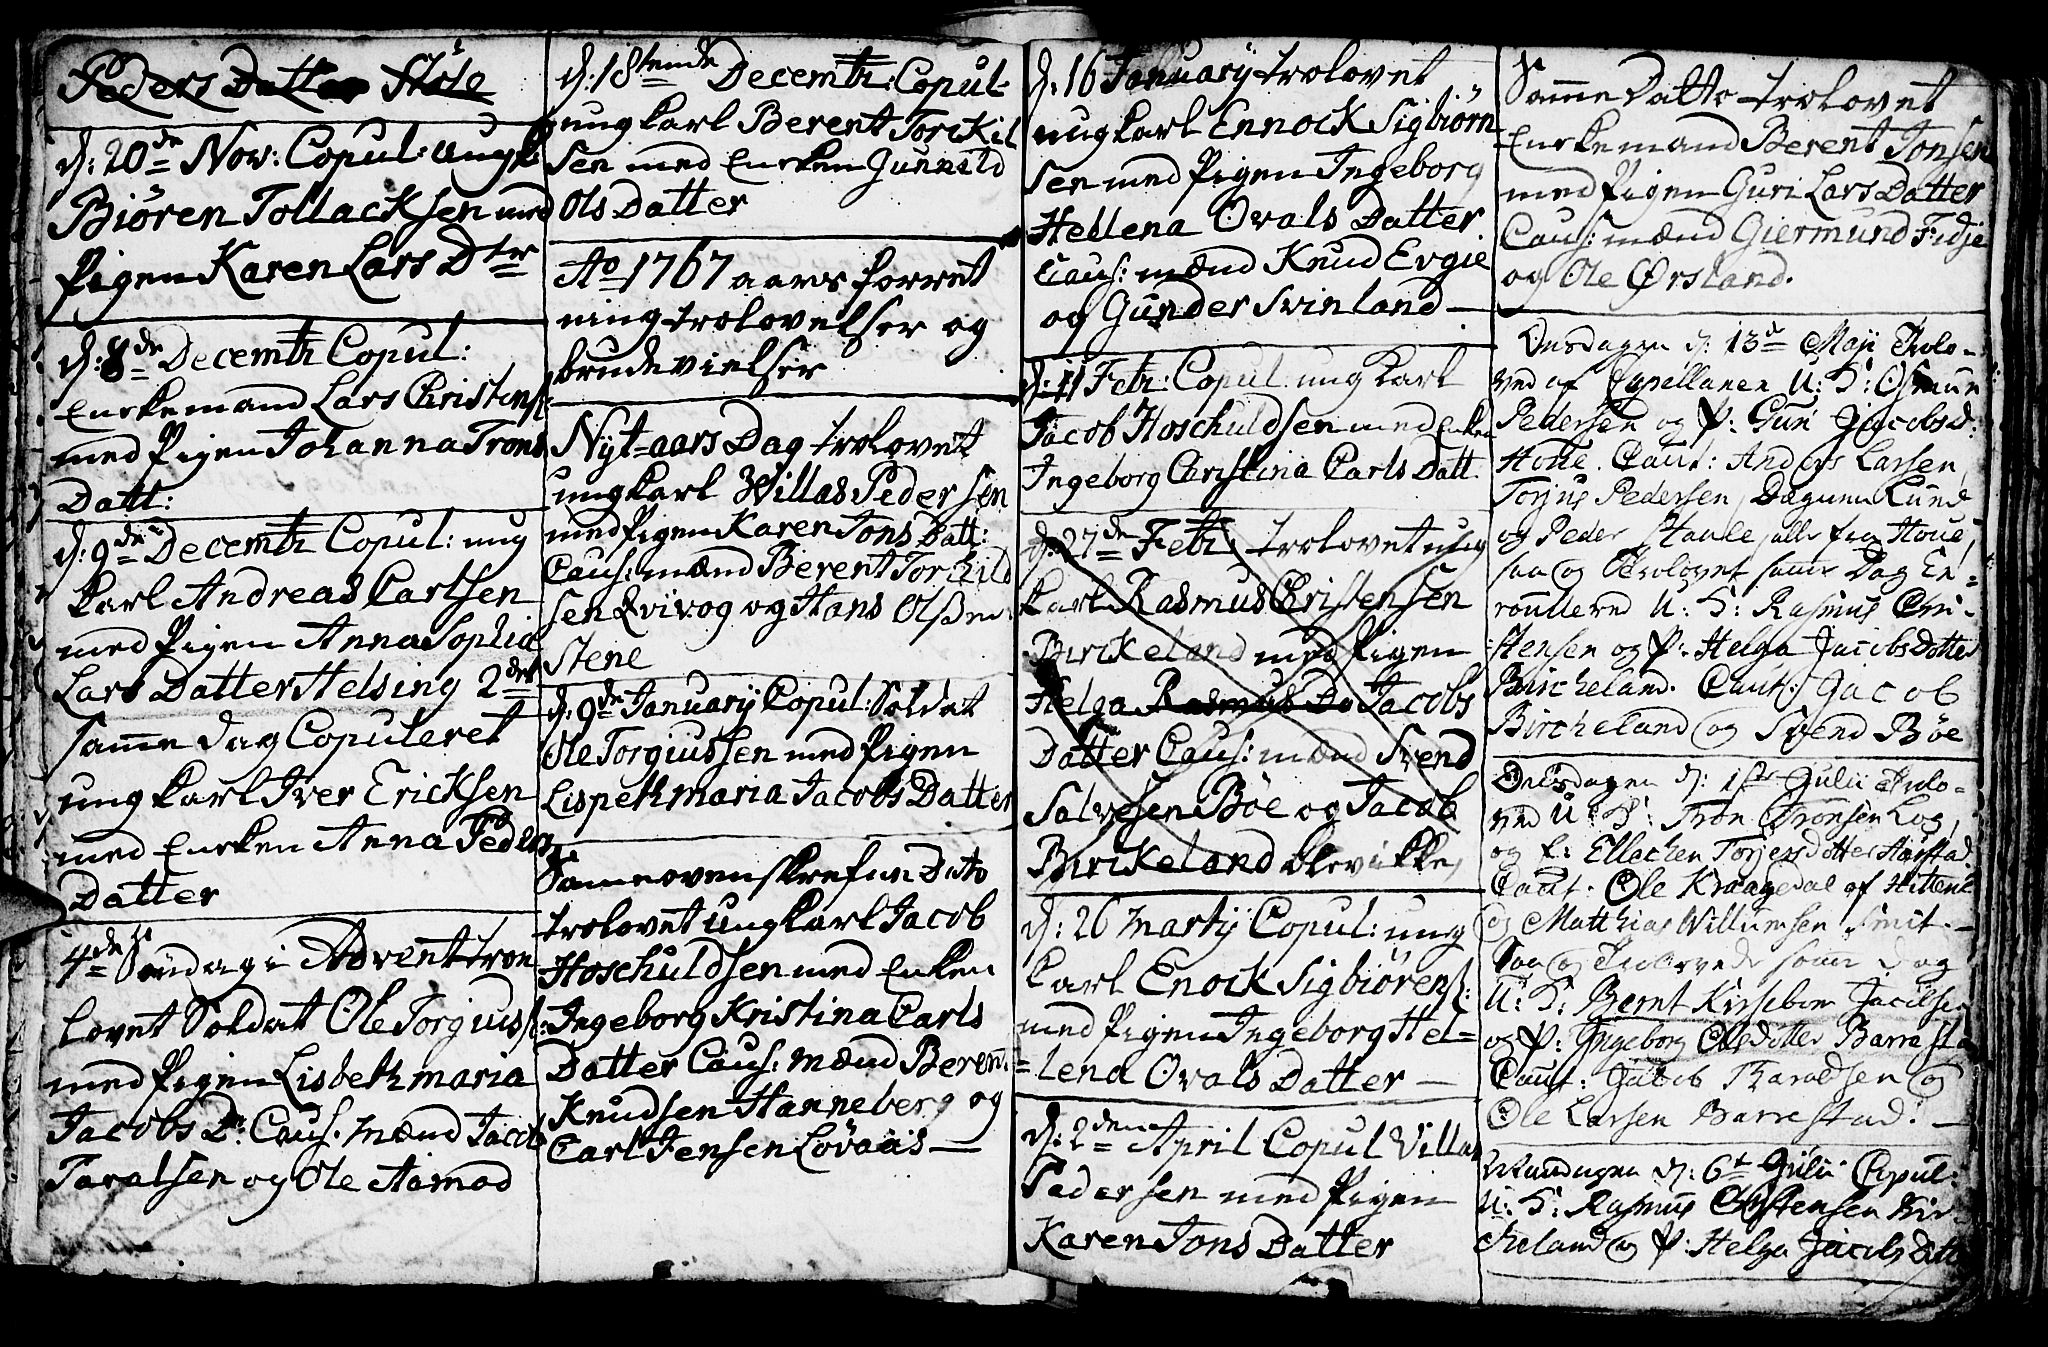 Peders Datter Støle
d: 20de Nov: Copul: ungk
Biören Tollacksen med
Pigen Karen Lars Dtr
d: 8de Decembr Copul:
Enckemand Lars Christens:
med Pigen Johanna Trons
Datt:
d: 9de Decembr Copul: ung
karl Andreas Carlsen
med Pigen Anna Sophia
Lars Datter Helsing 2det
samme dag Copuleret
ungkarl Iver Ericksen
med Encken Anna Peders
Datter
4de Søndag i Advent troe
lovet Soldat Ole Torgiuss:
med Pigen Lisbeth maria
Jacobs D: Caus: mænd Jacob
Taralsen og Ole Aamod
d: 18tende Decembr: Copul:
ungkarl Berent Torckil
sen med Encken Gunnild
Ols Datter
Ao 1767 aars forret
ning trolovelser og
brudevielser
Nyt=aars Dag trolovet
ungkarl Willas Pedersen
med Pigen Karen Jons Datt:
Caus: mænd Berent Torchild
sen Qvivog og Hans Olssen
Stene
d: 9de Januarij Copul: Soldat
Ole Torgiussen med Pigen
Lispeth maria Jacobs Datter
Samme ovenskrefne Dato
trolovet ungkarl Jacob
Hoschuldsen med Enken
Ingeborg Kristina Carls
Datter Caus: mænd Berent
Knudsen Hanneberg og
Carl Jensen Lövaas —
d: 16 Januarij trolovet
ungkarl Ennock Sigbiörn
sen med Pigen Ingeborg
Hellena Ovals Datter
Caus: mænd Knud Evgie
og Gunder Svinland —
d: 11 Febr: Copul: ungkarl
Jacob Hoschuldsen med Enken
Ingeborg Christina Carls Datt
d: 27de Febr: trolovet ung
karl Rasmus Christensen
Birckeland med Pigen
Helga Rasmus Da Jacobs
Datter Caus: mænd Svend
Salvesen Böe og Jacob
Birckeland blev ikke
d: 26 Martij Copul: ung
karl Enock Sigbiörens:
med Pigen Ingeborg Hel=
=lena Ovals Datter —
d: 2den April Copul Villas
Pedersen med Pigen
Karen Jons Datter
Samme Datto trolovet
Enckemand Berent Jonsen
med Pigen Guri Lars Datter
Caus: mænd Giermund Fidje
og Ole Ørsland.
Onsdagen d: 13de Maji Trolo-
ved af Capellanen U: K: Osmun
Pedersen og P: Guri Jacobsd:
Houe. Caut: Anders Larsen,
Torjus Pedersen, Dagunn Lund
og Peder Haule alle fra Houe,
saa og Trolovet samme Dag En=
roullered U: K: Rasmus Chri-
stensen og P: Helga Jacobs Dotter
Bircheland. Caut: Jacob
Bircheland og Svend Böe
Onsdagen d: 1ste Julii Trolo-
ved U: K: Tron Tronsen Log,
og P: Ellechen Torjers dotter Hapstad
Caut. Ole Kraagedal af Hitteröe
og Matthias Willumsen Smit. —
Saa og Trolovede samme Dag
U: K: Bernt Kirsebom Jacobsen
og P: Ingeborg Olsdotter Barrestad
Caut: Jacob Taraldsen og
Ole Larsen Barrestad. —
Mandagen d: 6te Julii Copul:
U: K: Rasmus Christensen Bir-
cheland og P: Helga Jacobs Datter